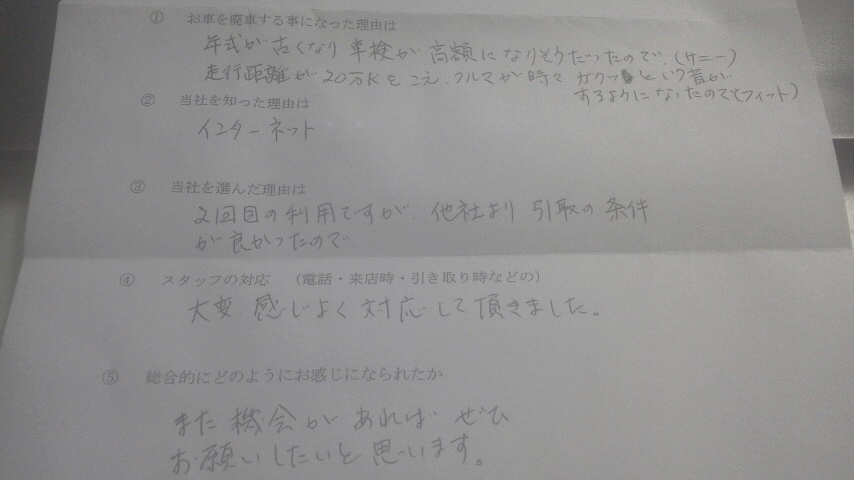 ① お車を廃車する事になった理由は
年式が古くなり 車検が 高額になりそうだったので、(サニー)
走行距離が20万Kをこえ クルマが時々 ガクッという音が
するようになったので(フィット)
② 当社を知った理由は
インターネット
③ 当社を選んだ理由は
2回目の利用ですが、他社より 引取の条件
が良かったので
④ スタッフの対応 (電話・来店時・引き取り時などの)
大変 感じよく 対応して頂きました。
⑤ 総合的にどのようにお感じになられたか
また機会があれば ぜひ
お願いしたいと思います。